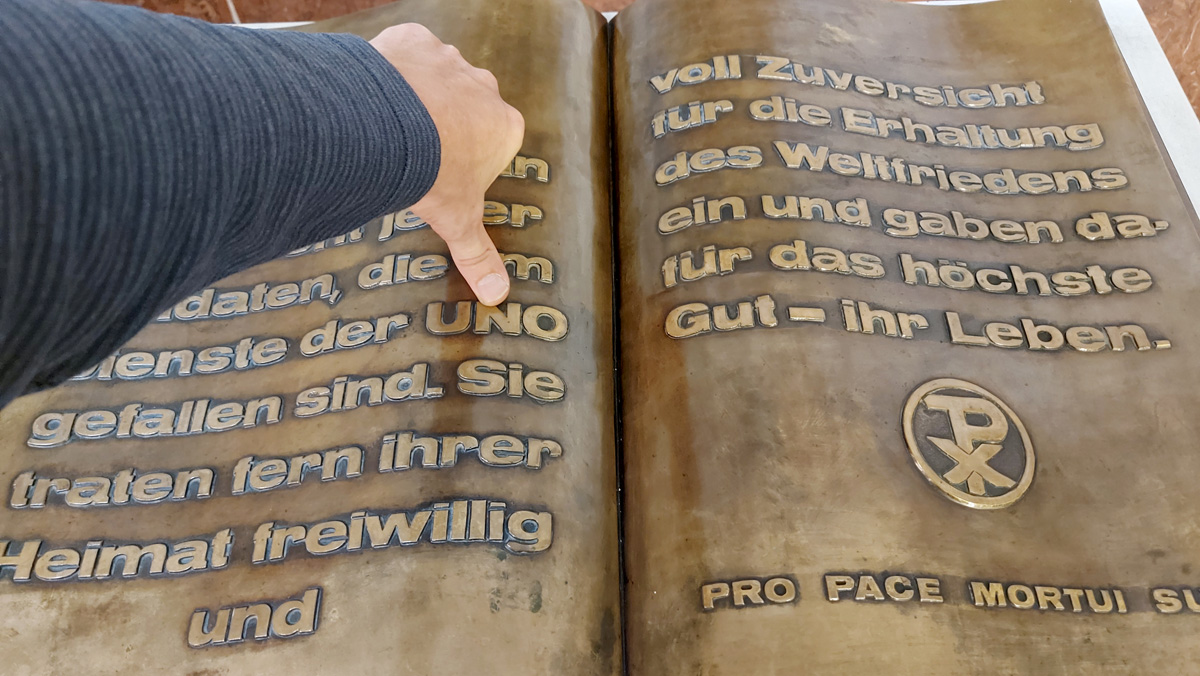 der
daten, die im
Dienste der UNO
gefallen sind. Sie
traten fern ihrer
Heimat freiwillig
und
voll Zuversicht
für die Erhaltung
des Weltfriedens
ein und gaben da-
für das höchste
Gut – ihr Leben.
PX
PRO PACE MORTUI SU